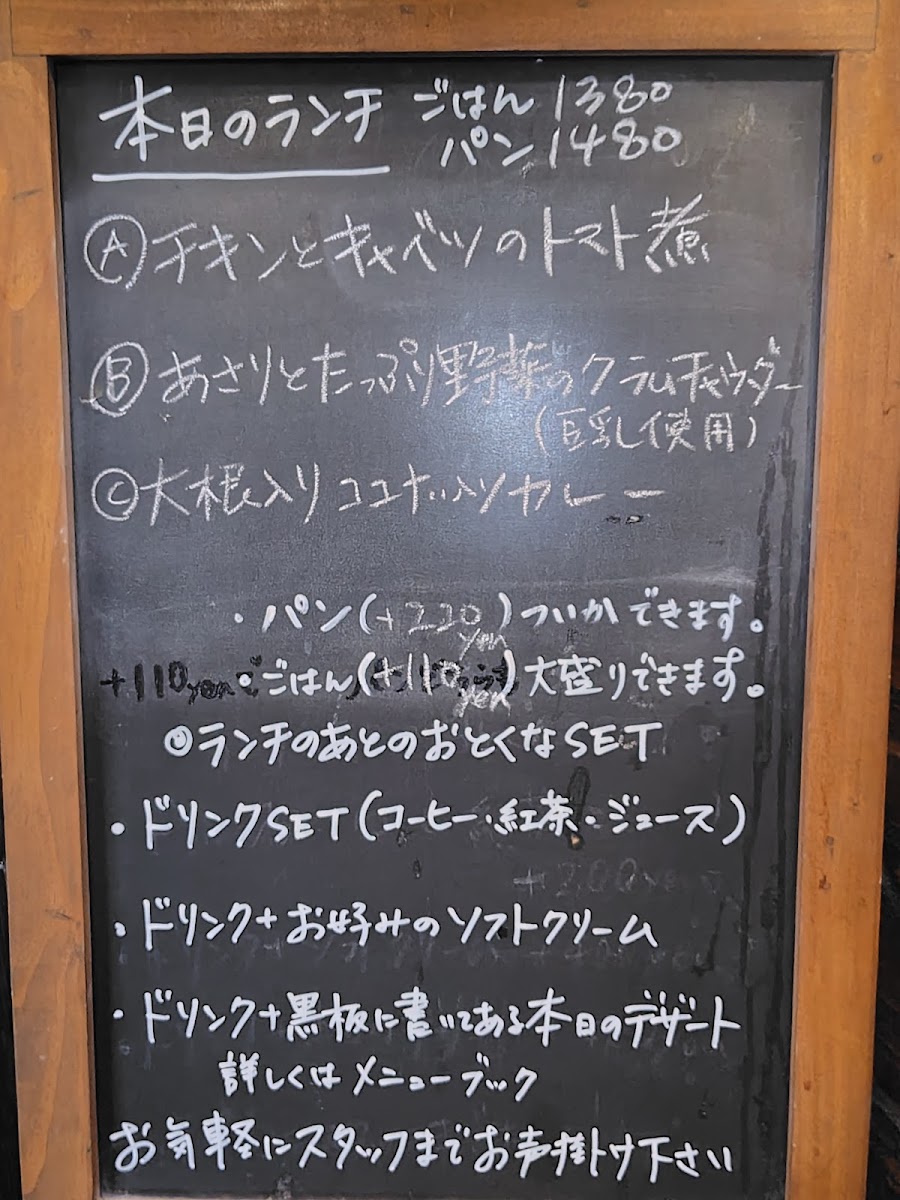 本日のランチ ごはん 1380
パン 1480
Ⓐチキンとキャベツのトマト煮
Ⓑあさりとたっぷり野菜のクラムチャウダー
(豆乳使用)
Ⓒ大根入りココナッツカレー
・パン(+220yen)ついかできます。
+110yen ・ごはん(+110yen)大盛りできます。
◎ランチのあとのおとくなSET
・ドリンクSET(コーヒー・紅茶・ジュース)
+200yen
・ドリンク+お好みのソフトクリーム
・ドリンク+黒板に書いてある本日のデザート
詳しくはメニューブック
お気軽にスタッフまでお声掛け下さい